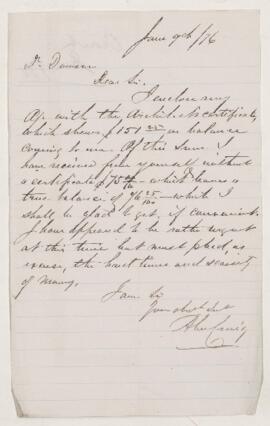 June 9th /76
Dr Dawson
Dear Sir.
I enclose my
A/c with the Architects Certificate,
which shows $151 25 as balance
coming to me. Of this sum I
have received from yourself without
a certificate $75 — which leaves a
true balance of 76 25/100 — which I
shall be glad to get, if convenient.
I am opposed to be rather urgent
at this time but must plead as
excuse, the hard times and scarcity
of Money.
I am Sir
Your obdt Svt
Craig